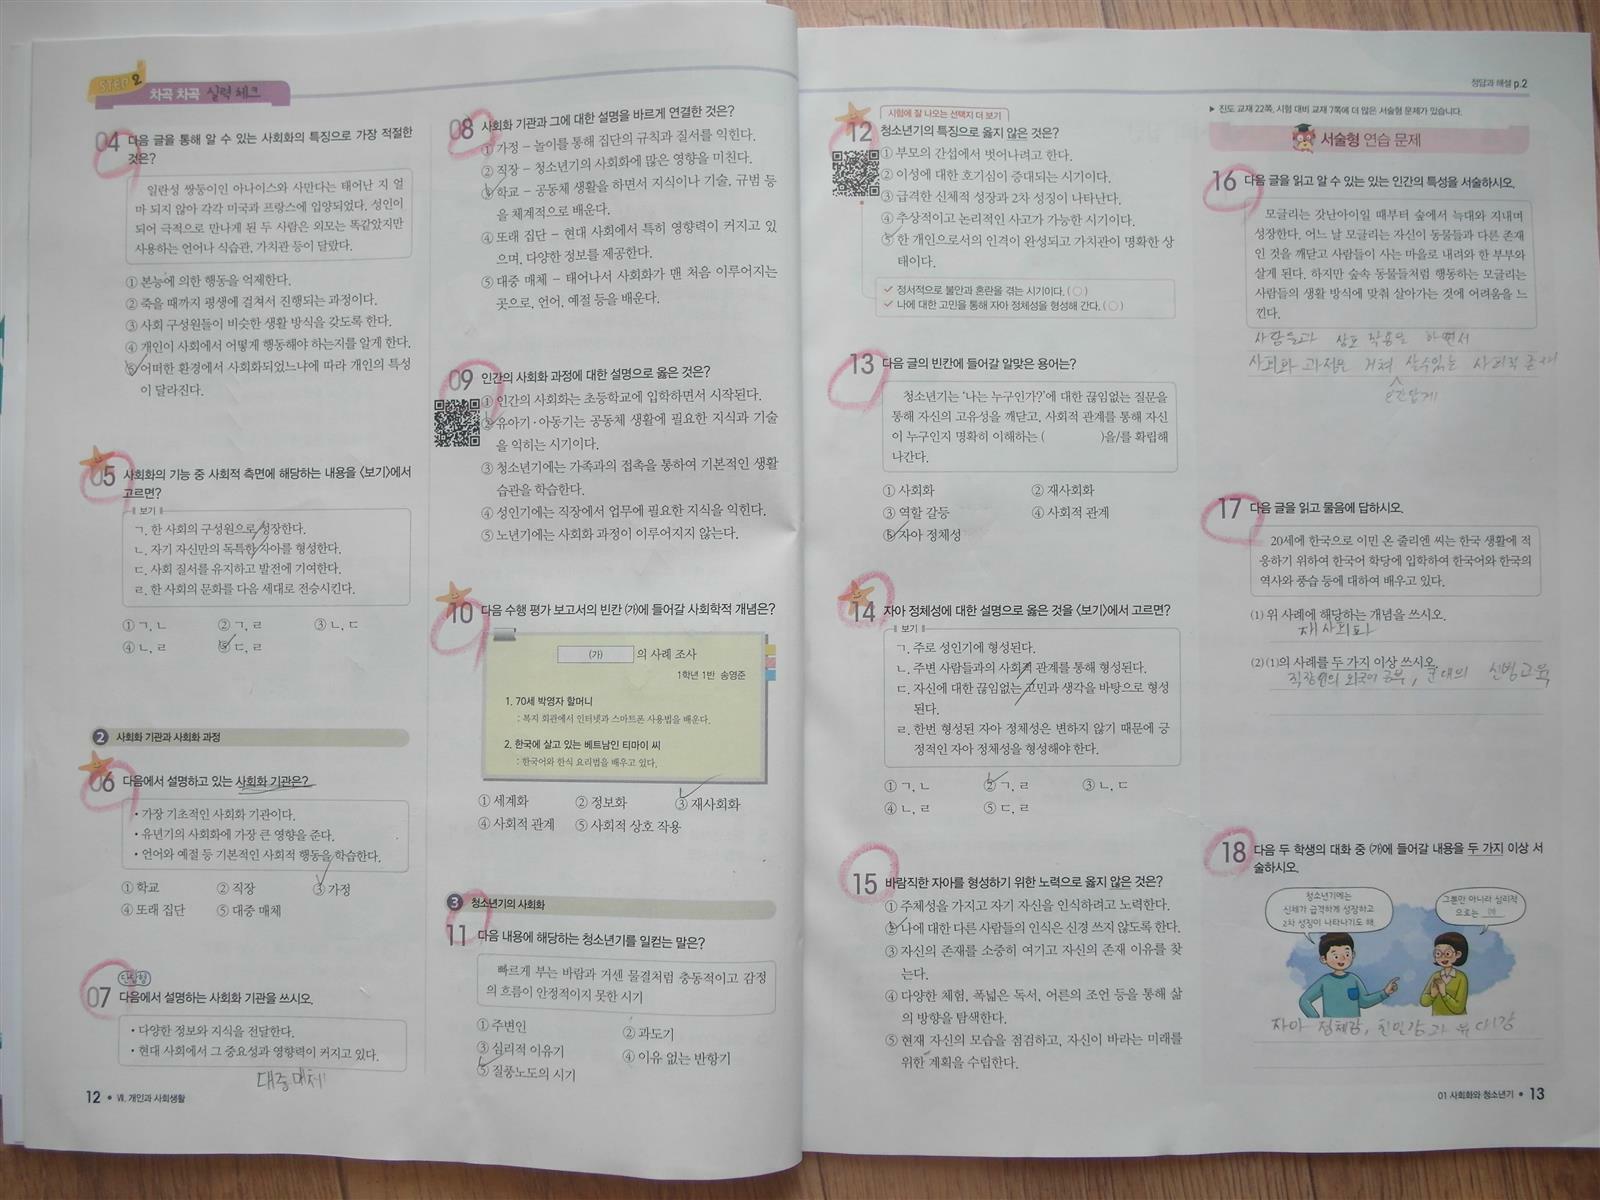 STEP 2
차곡 차곡 실력 체크
04 다음 글을 통해 알 수 있는 사회화의 특징으로 가장 적절한
것은?
일란성 쌍둥이인 아나이스와 사만다는 태어난 지 얼
마 되지 않아 각각 미국과 프랑스에 입양되었다. 성인이
되어 극적으로 만나게 된 두 사람은 외모는 똑같았지만
사용하는 언어나 식습관, 가치관 등이 달랐다.
① 본능에 의한 행동을 억제한다.
② 죽을 때까지 평생에 걸쳐서 진행되는 과정이다.
③ 사회 구성원들이 비슷한 생활 방식을 갖도록 한다.
④ 개인이 사회에서 어떻게 행동해야 하는지를 알게 한다.
⑤ 어떠한 환경에서 사회화되었느냐에 따라 개인의 특성
이 달라진다.
05 사회화의 기능 중 사회적 측면에 해당하는 내용을 〈보기〉에서
고르면?
보기
ㄱ. 한 사회의 구성원으로 성장한다.
ㄴ. 자기 자신만의 독특한 자아를 형성한다.
ㄷ. 사회 질서를 유지하고 발전에 기여한다.
ㄹ. 한 사회의 문화를 다음 세대로 전승시킨다.
① ㄱ, ㄴ ② ㄱ, ㄹ ③ ㄴ, ㄷ
④ ㄴ, ㄹ ⑤ ㄷ, ㄹ
2 사회화 기관과 사회화 과정
06 다음에서 설명하고 있는 사회화 기관은?
• 가장 기초적인 사회화 기관이다.
• 유년기의 사회화에 가장 큰 영향을 준다.
• 언어와 예절 등 기본적인 사회적 행동을 학습한다.
① 학교 ② 직장 ③ 가정
④ 또래 집단 ⑤ 대중 매체
단답형
07 다음에서 설명하는 사회화 기관을 쓰시오.
• 다양한 정보와 지식을 전달한다.
• 현대 사회에서 그 중요성과 영향력이 커지고 있다.
대중매체
12 • Ⅶ. 개인과 사회생활
08 사회화 기관과 그에 대한 설명을 바르게 연결한 것은?
① 가정 – 놀이를 통해 집단의 규칙과 질서를 익힌다.
② 직장 – 청소년기의 사회화에 많은 영향을 미친다.
③ 학교 – 공동체 생활을 하면서 지식이나 기술, 규범 등
을 체계적으로 배운다.
④ 또래 집단 – 현대 사회에서 특히 영향력이 커지고 있
으며, 다양한 정보를 제공한다.
⑤ 대중 매체 – 태어나서 사회화가 맨 처음 이루어지는
곳으로, 언어, 예절 등을 배운다.
09 인간의 사회화 과정에 대한 설명으로 옳은 것은?
① 인간의 사회화는 초등학교에 입학하면서 시작된다.
② 유아기·아동기는 공동체 생활에 필요한 지식과 기술
을 익히는 시기이다.
③ 청소년기에는 가족과의 접촉을 통하여 기본적인 생활
습관을 학습한다.
④ 성인기에는 직장에서 업무에 필요한 지식을 익힌다.
⑤ 노년기에는 사회화 과정이 이루어지지 않는다.
10 다음 수행 평가 보고서의 빈칸 (가)에 들어갈 사회학적 개념은?
(가) 의 사례 조사
1학년 1반 송영준
1. 70세 박영자 할머니
: 복지 회관에서 인터넷과 스마트폰 사용법을 배운다.
2. 한국에 살고 있는 베트남인 티마이 씨
: 한국어와 한식 요리법을 배우고 있다.
① 세계화 ② 정보화 ③ 재사회화
④ 사회적 관계 ⑤ 사회적 상호 작용
3 청소년기의 사회화
11 다음 내용에 해당하는 청소년기를 일컫는 말은?
빠르게 부는 바람과 거센 물결처럼 충동적이고 감정
의 흐름이 안정적이지 못한 시기
① 주변인 ② 과도기
③ 심리적 이유기 ④ 이유 없는 반항기
⑤ 질풍노도의 시기
시험에 잘 나오는 선택지 더 보기
12 청소년기의 특징으로 옳지 않은 것은?
① 부모의 간섭에서 벗어나려고 한다.
② 이성에 대한 호기심이 증대되는 시기이다.
③ 급격한 신체적 성장과 2차 성징이 나타난다.
④ 추상적이고 논리적인 사고가 가능한 시기이다.
⑤ 한 개인으로서의 인격이 완성되고 가치관이 명확한 상
태이다.
정서적으로 불안과 혼란을 겪는 시기이다. (○)
나에 대한 고민을 통해 자아 정체성을 형성해 간다. (○)
13 다음 글의 빈칸에 들어갈 알맞은 용어는?
청소년기는 '나는 누구인가?'에 대한 끊임없는 질문을
통해 자신의 고유성을 깨닫고, 사회적 관계를 통해 자신
이 누구인지 명확히 이해하는 ( )을/를 확립해
나간다.
① 사회화 ② 재사회화
③ 역할 갈등 ④ 사회적 관계
⑤ 자아 정체성
14 자아 정체성에 대한 설명으로 옳은 것을 〈보기〉에서 고르면?
보기
ㄱ. 주로 성인기에 형성된다.
ㄴ. 주변 사람들과의 사회적 관계를 통해 형성된다.
ㄷ. 자신에 대한 끊임없는 고민과 생각을 바탕으로 형성
된다.
ㄹ. 한번 형성된 자아 정체성은 변하지 않기 때문에 긍
정적인 자아 정체성을 형성해야 한다.
① ㄱ, ㄴ ② ㄱ, ㄹ ③ ㄴ, ㄷ
④ ㄴ, ㄹ ⑤ ㄷ, ㄹ
15 바람직한 자아를 형성하기 위한 노력으로 옳지 않은 것은?
① 주체성을 가지고 자기 자신을 인식하려고 노력한다.
② 나에 대한 다른 사람들의 인식은 신경 쓰지 않도록 한다.
③ 자신의 존재를 소중히 여기고 자신의 존재 이유를 찾
는다.
④ 다양한 체험, 폭넓은 독서, 어른의 조언 등을 통해 삶
의 방향을 탐색한다.
⑤ 현재 자신의 모습을 점검하고, 자신이 바라는 미래를
위한 계획을 수립한다.
정답과 해설 p.2
▶ 진도 교재 22쪽, 시험 대비 교재 7쪽에 더 많은 서술형 문제가 있습니다.
서술형 연습 문제
16 다음 글을 읽고 알 수 있는 있는 인간의 특성을 서술하시오.
모글리는 갓난아이일 때부터 숲에서 늑대와 지내며
성장한다. 어느 날 모글리는 자신이 동물들과 다른 존재
인 것을 깨닫고 사람들이 사는 마을로 내려와 한 부부와
살게 된다. 하지만 숲속 동물들처럼 행동하는 모글리는
사람들의 생활 방식에 맞춰 살아가는 것에 어려움을 느
낀다.
사람들과 상호 작용을 하면서
사회화 과정을 거쳐 살수있는 사회적 존재
인간답게
17 다음 글을 읽고 물음에 답하시오.
20세에 한국으로 이민 온 줄리엔 씨는 한국 생활에 적
응하기 위하여 한국어 학당에 입학하여 한국어와 한국의
역사와 풍습 등에 대하여 배우고 있다.
(1) 위 사례에 해당하는 개념을 쓰시오.
재사회화
(2) (1)의 사례를 두 가지 이상 쓰시오.
직장인의 외국어 공부, 군대의 신병교육
18 다음 두 학생의 대화 중 (가)에 들어갈 내용을 두 가지 이상 서
술하시오.
청소년기에는
신체가 급격하게 성장하고
2차 성징이 나타나기도 해
그뿐만 아니라 심리적
으로는 (가)
자아 정체감, 친밀감과 유대감
01 사회화와 청소년기 • 13